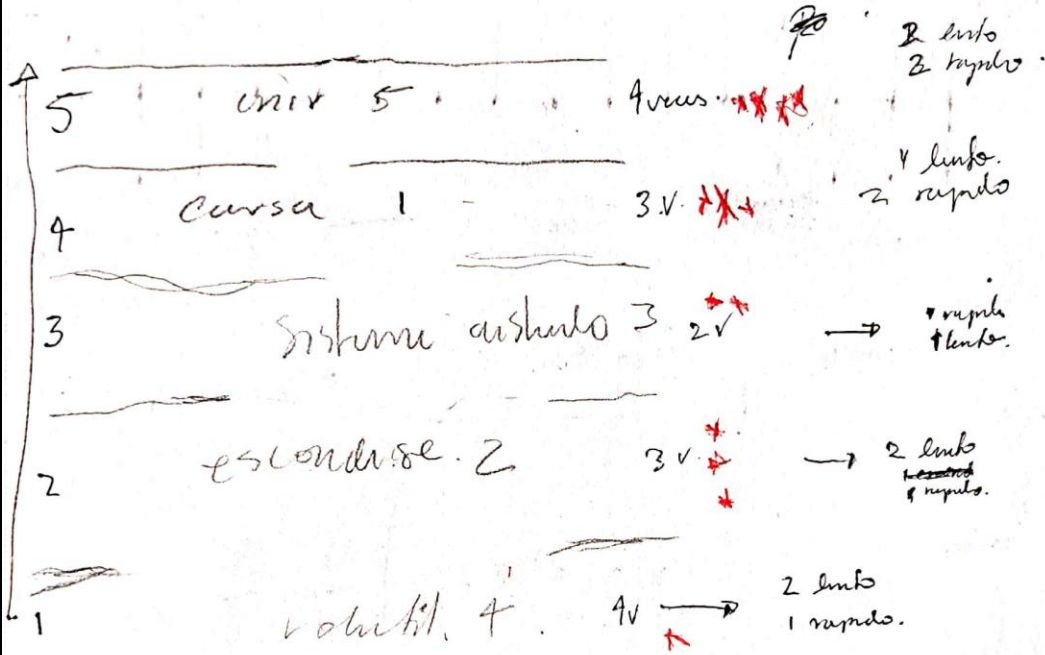 2 lento
2 rapido.
5 unir 5 4 veces
4 lento.
2 rapido
4 cursa 1 3 V.
3 sistema aislado 3 2 V → rapido
1 lento.
2 escondirse. 2 3 V. → 2 lento
rapido.
1 volutil. 4. 4V → 2 lento
1 rapido.